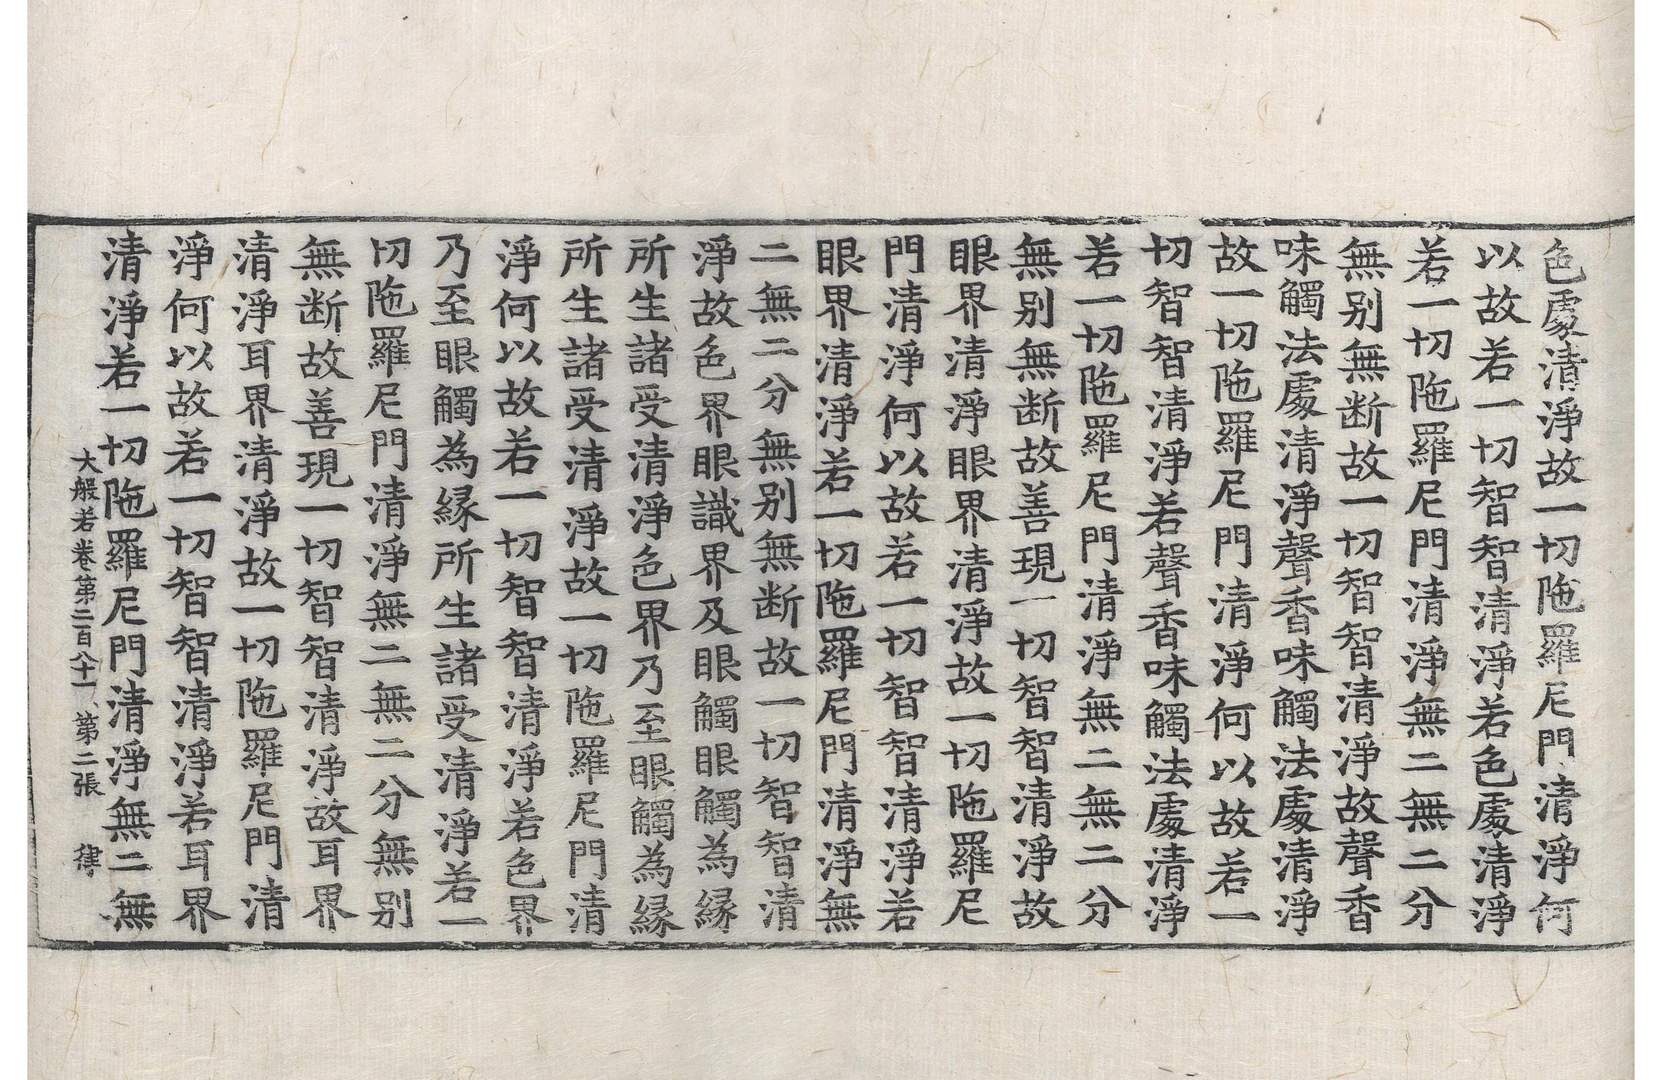 色處清淨故一切陁羅尼門清淨何
以故若一切智智清淨若色處清淨
若一切陁羅尼門清淨無二無二分
無别無断故一切智智清淨故聲香
味觸法處清淨聲香味觸法處清淨
故一切陁羅尼門清淨何以故若一
切智智清淨若聲香味觸法處清淨
若一切陁羅尼門清淨無二無二分
無别無断故善現一切智智清淨故
眼界清淨眼界清淨故一切陁羅尼
門清淨何以故若一切智智清淨若
眼界清淨若一切陁羅尼門清淨無
二無二分無别無断故一切智智清
淨故色界眼識界及眼觸眼觸為縁
所生諸受清淨色界乃至眼觸為縁
所生諸受清淨故一切陁羅尼門清
淨何以故若一切智智清淨若色界
乃至眼觸為縁所生諸受清淨若一
切陁羅尼門清淨無二無二分無别
無断故善現一切智智清淨故耳界
清淨耳界清淨故一切陁羅尼門清
淨何以故若一切智智清淨若耳界
清淨若一切陁羅尼門清淨無二無
大般若卷第二百六十一 第二張 律